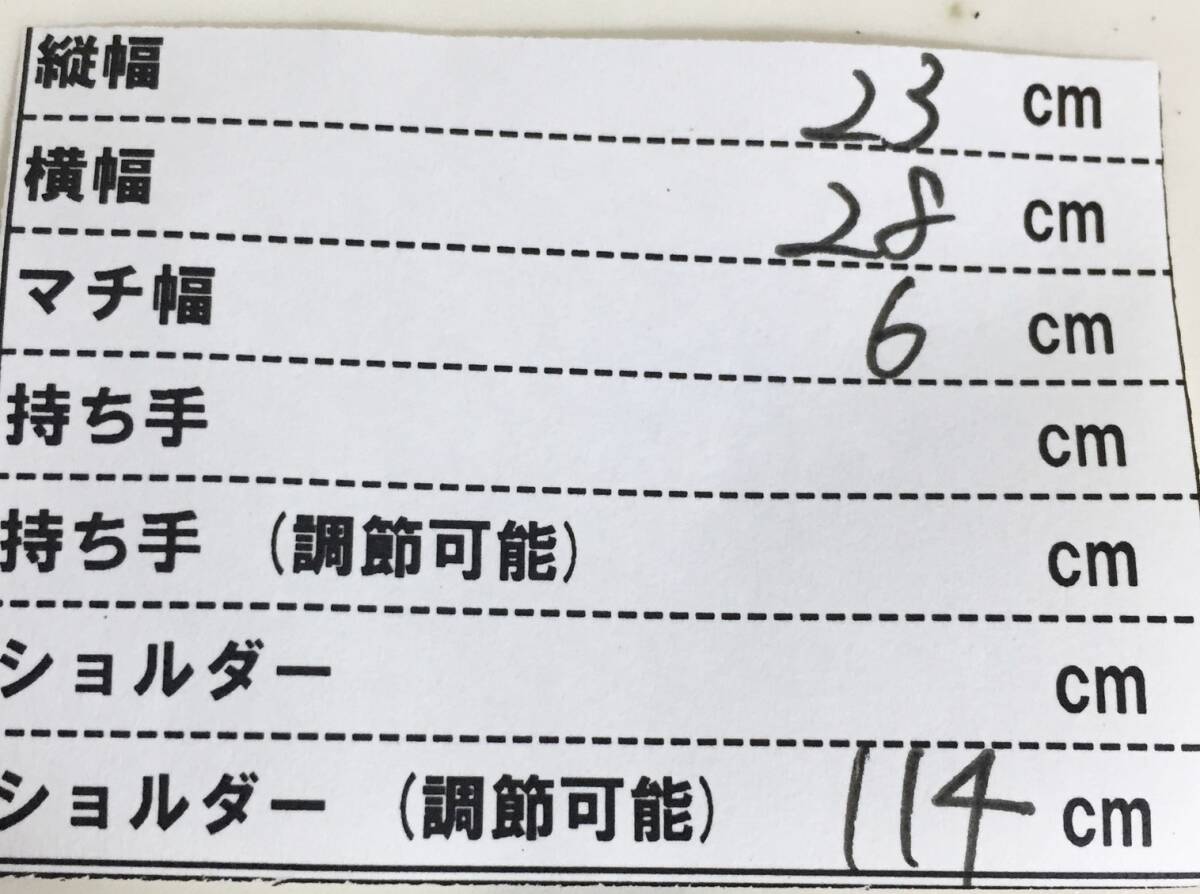 縦幅 23 cm
横幅 28 cm
マチ幅 6 cm
持ち手 cm
持ち手 (調節可能) cm
ショルダー cm
ショルダー (調節可能) 114 cm